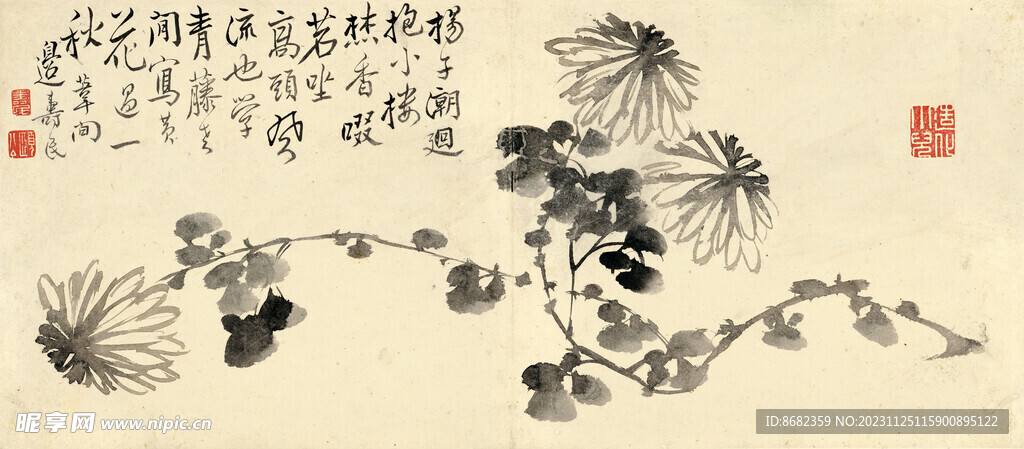 楊子潮廻
抱小楼
焚香啜
茗坐
高頭
流也学
青藤老
閒寫黄
花過一
秋
葦间
邉壽民
昵享网 www.nipic.cn
ID:8682359 NO:20231125115900895122